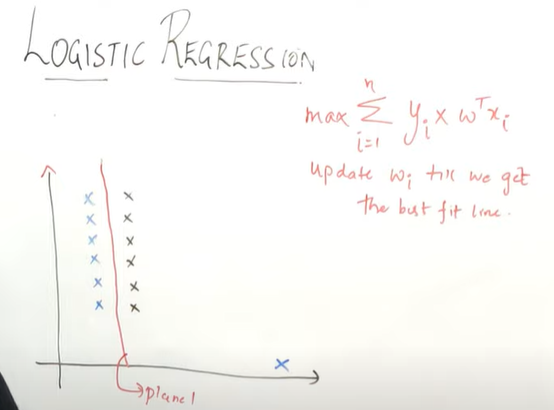 LOGISTIC REGRESSION
max n∑i=1 yi x wᵀxi
update wi till we get
the best fit line.
plane 1